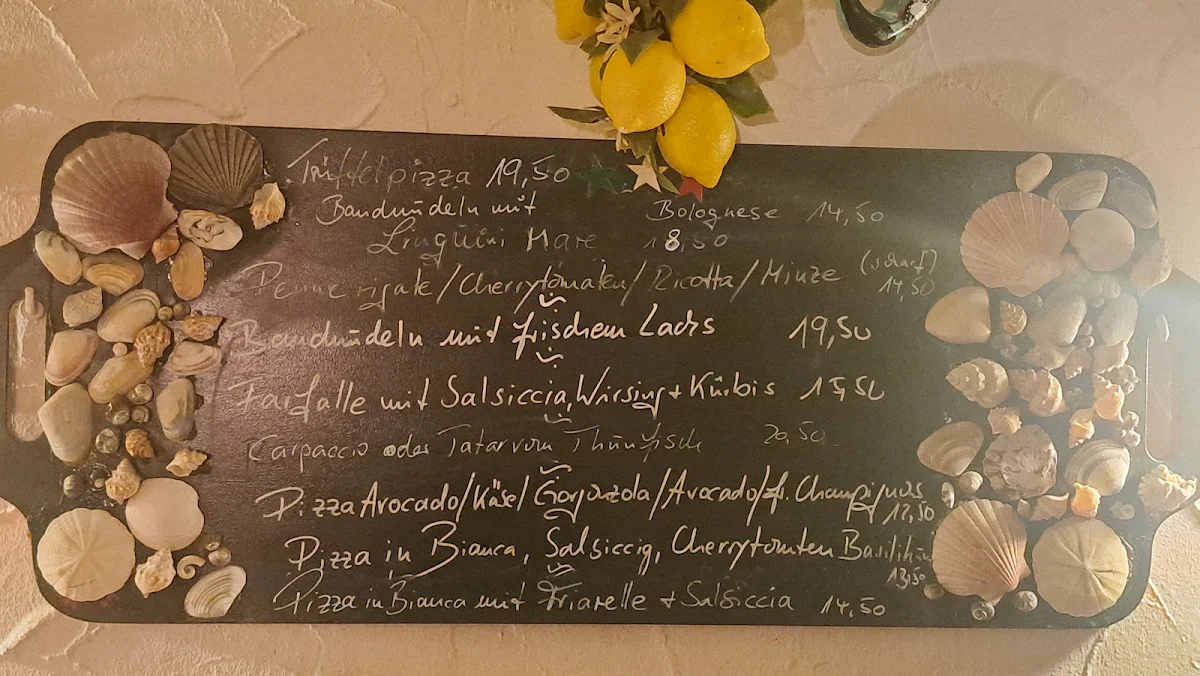 Trüffelpizza 19,50
Bandnudeln mit Bolognese 14,50
Linguini Mare 18,50
Penne rigate/Cherrytomaten/Ricotta/Minze (scharf)
14,50
Bandnudeln mit frischem Lachs 19,50
Farfalle mit Salsiccia, Wirsing + Kürbis 15,50
Carpaccio oder Tatar vom Thunfisch 20,50
Pizza Avocado/Käse/Gorgonzola/Avocado/fr. Champignos
Pizza in Bianca, Salsiccia, Cherrytomten Basilikum
13,50
Pizza in Bianca mit Friarelle + Salsiccia 14,50